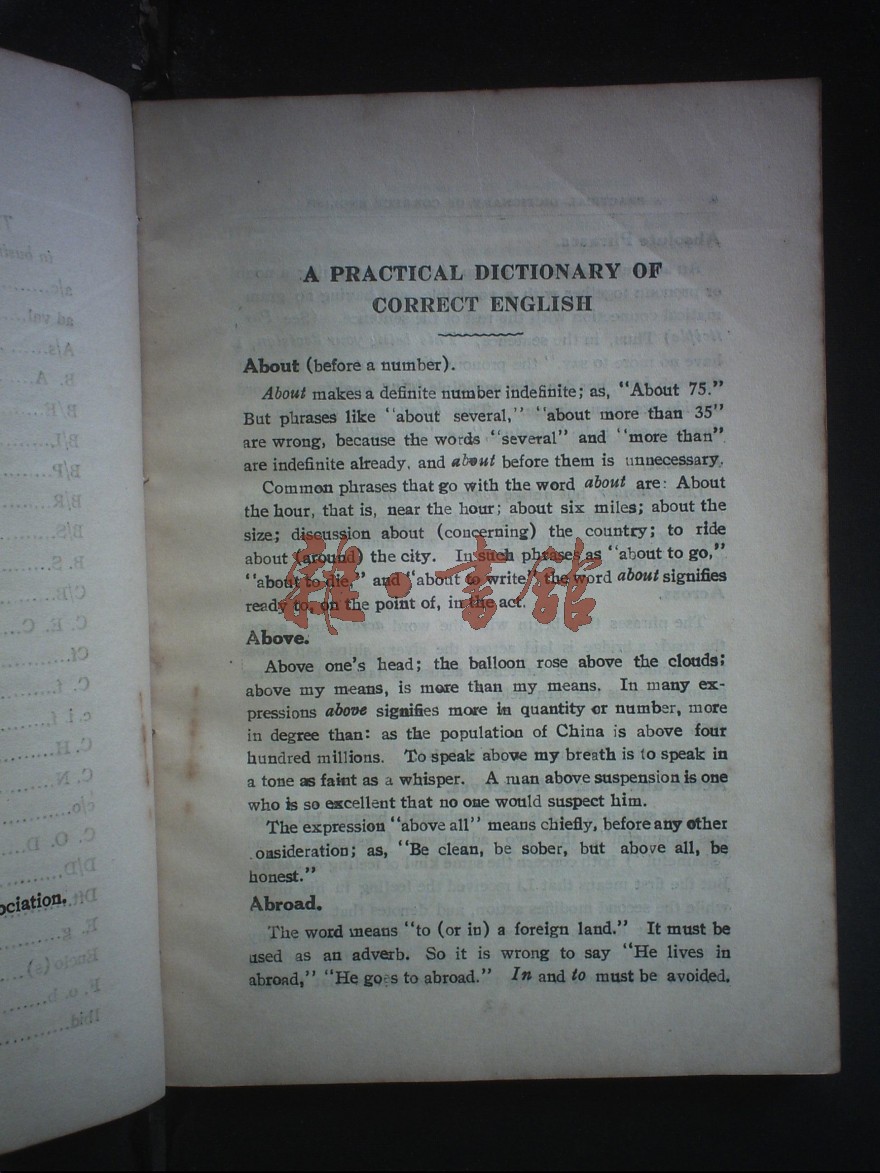 A PRACTICAL DICTIONARY OF
CORRECT ENGLISH
About (before a number).
About makes a definite number indefinite; as, "About 75."
But phrases like "about several," "about more than 35"
are wrong, because the words "several" and "more than"
are indefinite already, and about before them is unnecessary.
Common phrases that go with the word about are: About
the hour, that is, near the hour; about six miles; about the
size; discussion about (concerning) the country; to ride
about (around) the city. In such phrases as "about to go,"
"about to die," and "about to write" the word about signifies
ready to, on the point of, in the act.
雜·書館
Above.
Above one's head; the balloon rose above the clouds;
above my means, is more than my means. In many ex-
pressions above signifies more in quantity or number, more
in degree than: as the population of China is above four
hundred millions. To speak above my breath is to speak in
a tone as faint as a whisper. A man above suspension is one
who is so excellent that no one would suspect him.
The expression "above all" means chiefly, before any other
onsideration; as, "Be clean, be sober, but above all, be
honest."
Abroad.
The word means "to (or in) a foreign land." It must be
used as an adverb. So it is wrong to say "He lives in
abroad," "He goes to abroad." In and to must be avoided.
ociation.